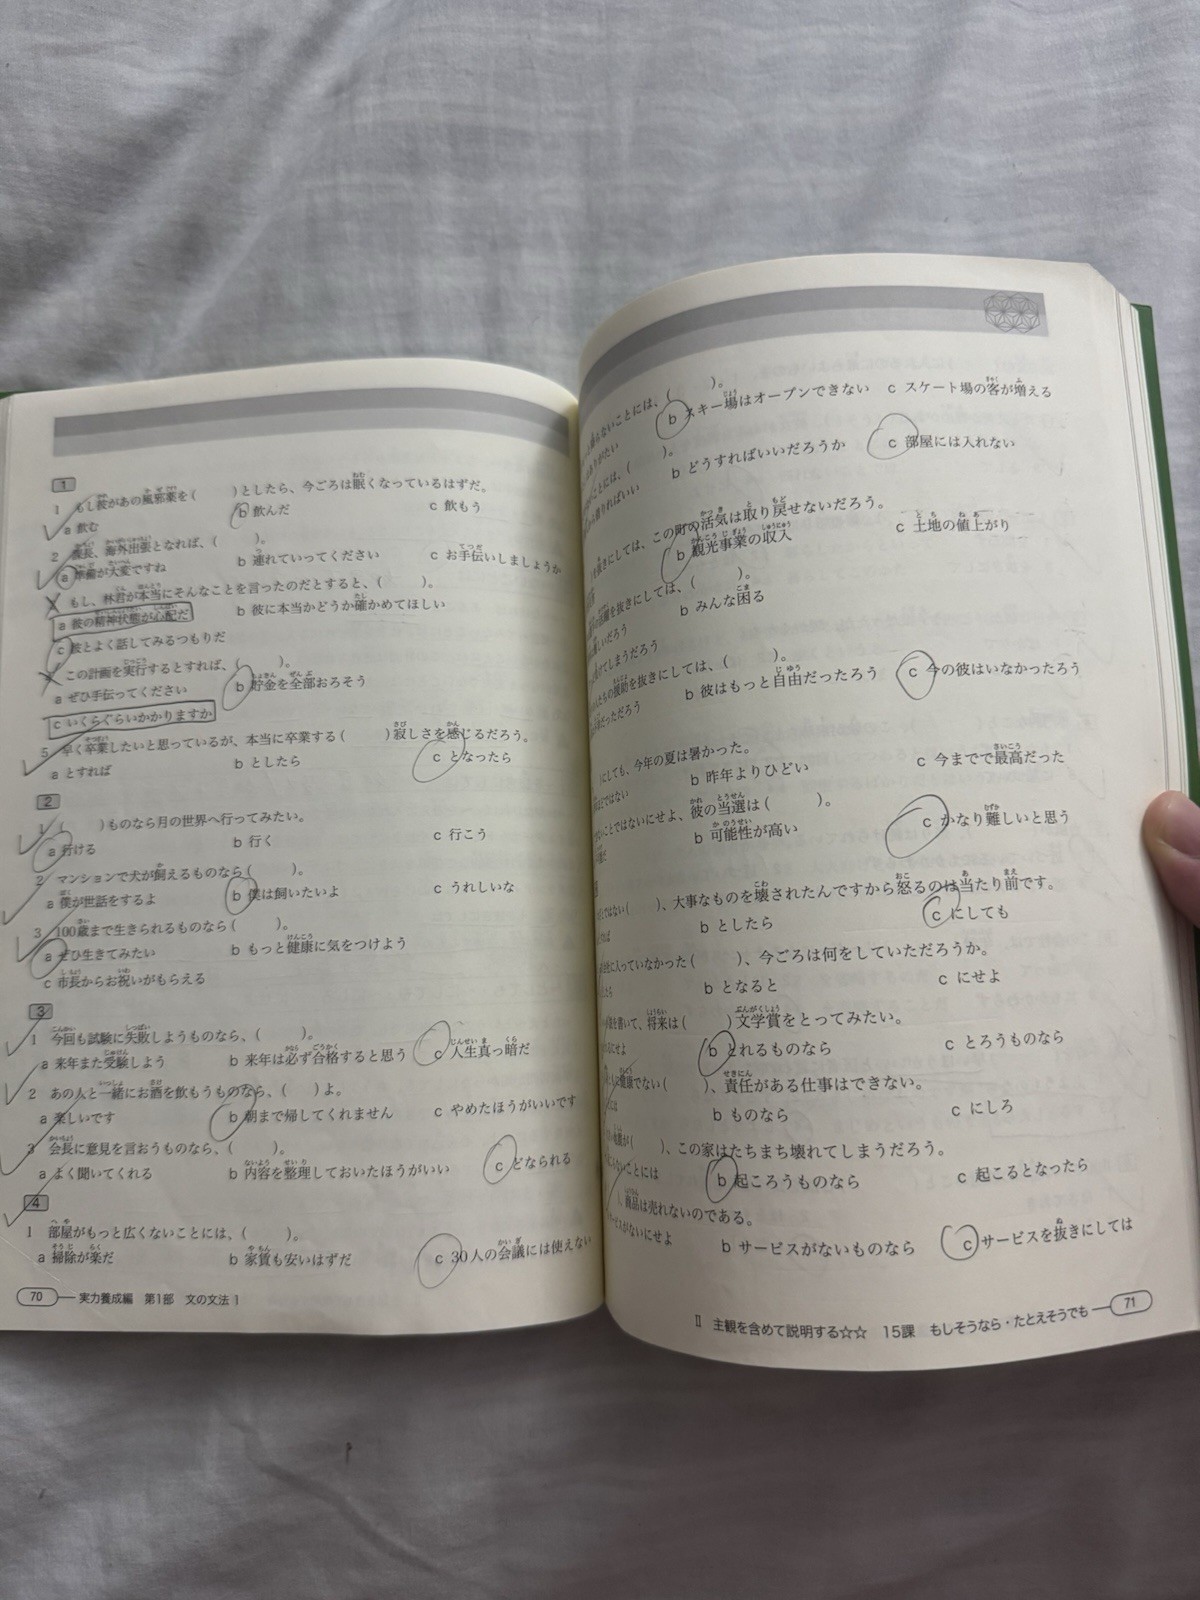 1
1 もし彼があの風邪薬を( )としたら、今ごろは眠くなっているはずだ。
a 飲む b 飲んだ c 飲もう
2 課長、海外出張となれば、( )。
a 準備が大変ですね b 連れていってください c お手伝いしましょうか
もし、林君が本当にそんなことを言ったのだとすると、( )。
a 彼の精神状態が心配だ b 彼に本当かどうか確かめてほしい
c 彼とよく話してみるつもりだ
この計画を実行するとすれば、( )。
a ぜひ手伝ってください b 貯金を全部おろそう
c いくらぐらいかかりますか
5 早く卒業したいと思っているが、本当に卒業する( )寂しさを感じるだろう。
a とすれば b としたら c となったら
2
1 ( )ものなら月の世界へ行ってみたい。
a 行ける b 行く c 行こう
2 マンションで犬が飼えるものなら( )。
a 僕が世話をするよ b 僕は飼いたいよ c うれしいな
3 100歳まで生きられるものなら( )。
a ぜひ生きてみたい b もっと健康に気をつけよう
c 市長からお祝いがもらえる
3
1 今回も試験に失敗しようものなら、( )。
a 来年また受験しよう b 来年は必ず合格すると思う c 人生真っ暗だ
2 あの人と一緒にお酒を飲もうものなら、( )よ。
a 楽しいです b 朝まで帰してくれません c やめたほうがいいです
3 会長に意見を言おうものなら、( )。
a よく聞いてくれる b 内容を整理しておいたほうがいい c どなられる
4
1 部屋がもっと広くないことには、( )。
a 掃除が楽だ b 家賃も安いはずだ c 30人の会議には使えない
70 実力養成編 第1部 文の文法1
らないことには、( )。
りがたい b スキー場はオープンできない c スケート場の客が増える
ことには、( )。
ら借りればいい b どうすればいいだろうか c 部屋には入れない
を抜きにしては、この町の活気は取り戻せないだろう。
b 観光事業の収入 c 土地の値上がり
を抜きにしては、( )。
しいだろう b みんな困る
てしまうだろう
たちの援助を抜きにしては、( )。
だっただろう b 彼はもっと自由だったろう c 今の彼はいなかったろう
)にしても、今年の夏は暑かった。
ほどではない b 昨年よりひどい c 今までで最高だった
ないことではないにせよ、彼の当選は( )。
b 可能性が高い c かなり難しいと思う
ではない( )、大事なものを壊されたんですから怒るのは当たり前です。
b としたら c にしても
に入っていなかった( )、今ごろは何をしていただろうか。
b となると c にせよ
を書いて、将来は( )文学賞をとってみたい。
にせよ b とれるものなら c とろうものなら
健康でない( )、責任がある仕事はできない。
には b ものなら c にしろ
( )、この家はたちまち壊れてしまうだろう。
ないことには b 起ころうものなら c 起こるとなったら
)、商品は売れないのである。
サービスがないにせよ b サービスがないものなら c サービスを抜きにしては
II 主観を含めて説明する☆☆ 15課 もしそうなら・たとえそうでも 71